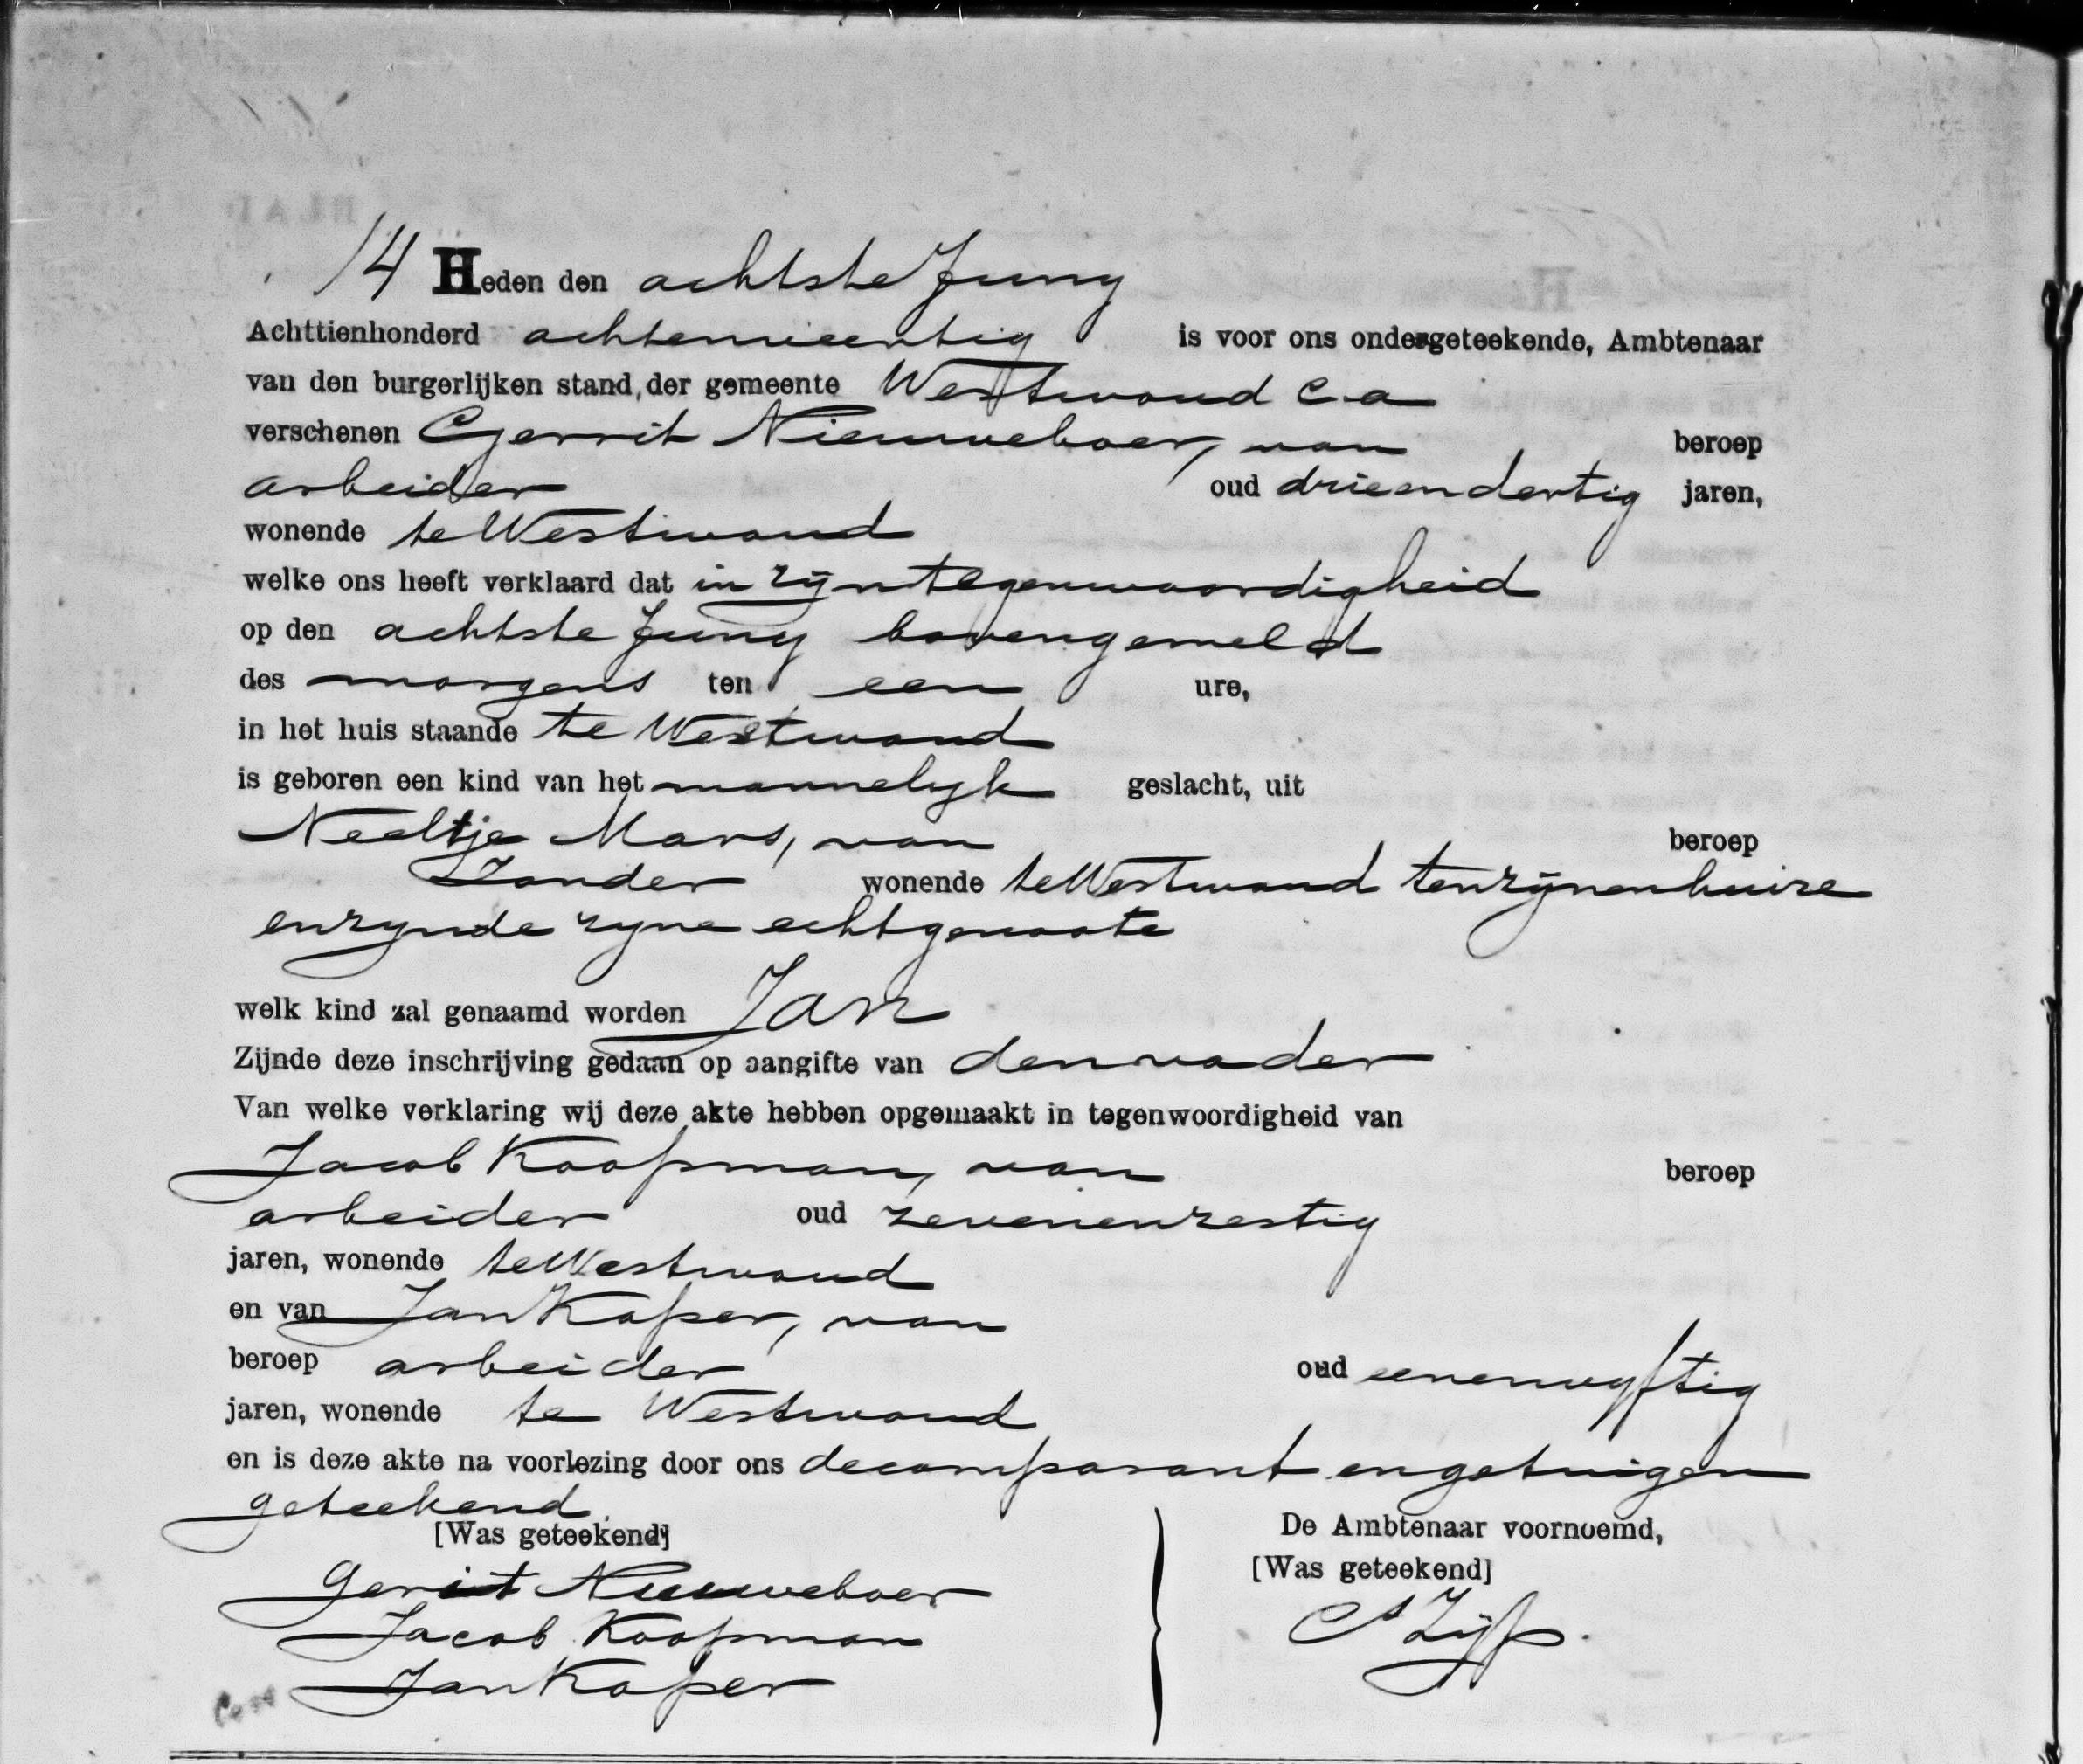 14 Heden den achtste Juny
Achttienhonderd achtennegentig is voor ons ondergeteekende, Ambtenaar
van den burgerlijken stand, der gemeente Westwoud c.a
verschenen Gerrit Nieuweboer, van beroep
arbeider oud drieendertig jaren,
wonende te Westwoud
welke ons heeft verklaard dat in zijn tegenwoordigheid
op den achtste Juny bovengemeld
des morgens ten een ure,
in het huis staande te Westwoud
is geboren een kind van het mannelyk geslacht, uit
Neeltje Mars, van beroep
Zonder wonende te Westwoud tenzijnenhuize
enzynde zyne echtgenoote
welk kind zal genaamd worden Jan
Zijnde deze inschrijving gedaan op aangifte van den vader
Van welke verklaring wij deze akte hebben opgemaakt in tegenwoordigheid van
Jacob Koopman, van beroep
arbeider oud zevenenzestig
jaren, wonende te Westwoud
en van Jan Kaper, van
beroep arbeider oud eenenvyftig
jaren, wonende te Westwoud
en is deze akte na voorlezing door ons de comparant en getuigen
geteekend.
[Was geteekend] De Ambtenaar voornoemd,
[Was geteekend]
Gerrit Nieuweboer
Jacob Koopman Zijp.
Jan Kaper